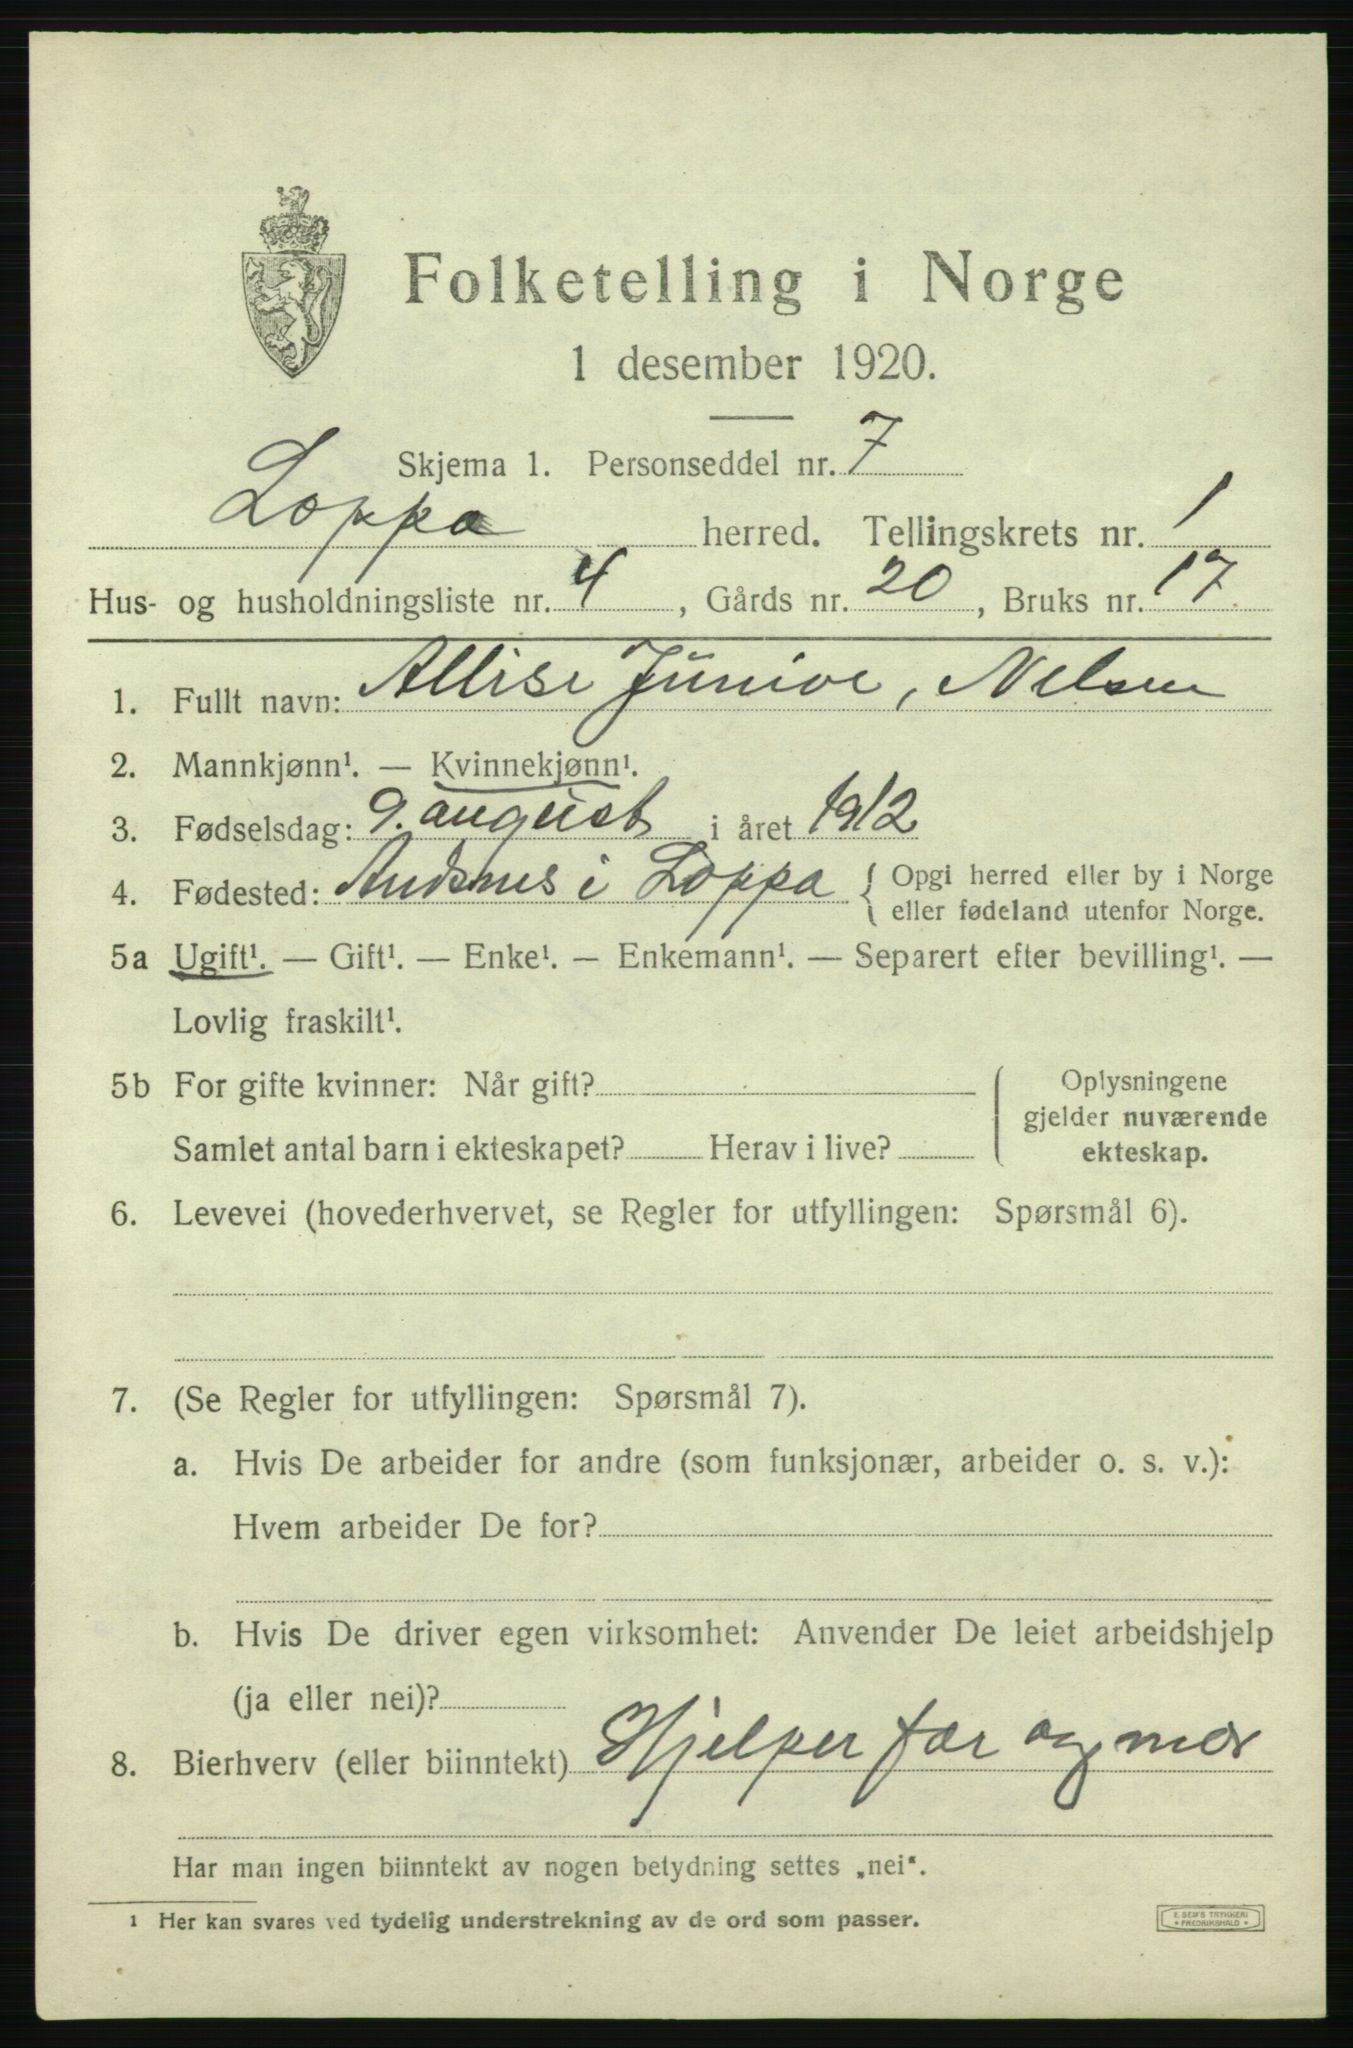 Folketelling i Norge
1 desember 1920.
Skjema 1. Personseddel nr. 7
Loppa herred. Tellingskrets nr. 1
Hus- og husholdningsliste nr. 4, Gårds nr. 20, Bruks nr. 17
1. Fullt navn: Allise Junive, Nelsen
2. Mannkjønn¹. — Kvinnekjønn¹.
3. Fødselsdag: 9. august i året 1912
4. Fødested: Andsnes i Loppa { Opgi herred eller by i Norge
eller fødeland utenfor Norge.
5a Ugift¹. — Gift¹. — Enke¹. — Enkemann¹. — Separert efter bevilling¹. —
Lovlig fraskilt¹.
5b For gifte kvinner: Når gift? ( Oplysningene
gjelder nuværende
Samlet antal barn i ekteskapet? Herav i live? ekteskap.
6. Levevei (hovederhvervet, se Regler for utfyllingen: Spørsmål 6).
7. (Se Regler for utfyllingen: Spørsmål 7).
a. Hvis De arbeider for andre (som funksjonær, arbeider o. s. v.):
Hvem arbeider De for?
b. Hvis De driver egen virksomhet: Anvender De leiet arbeidshjelp
(ja eller nei)?
8. Bierhverv (eller biinntekt) Hjelper far og mor
Har man ingen biinntekt av nogen betydning settes „nei“.
1 Her kan svares ved tydelig understrekning av de ord som passer.
E. SEM'S TRYKKERI
* FREDRIKSHALD *